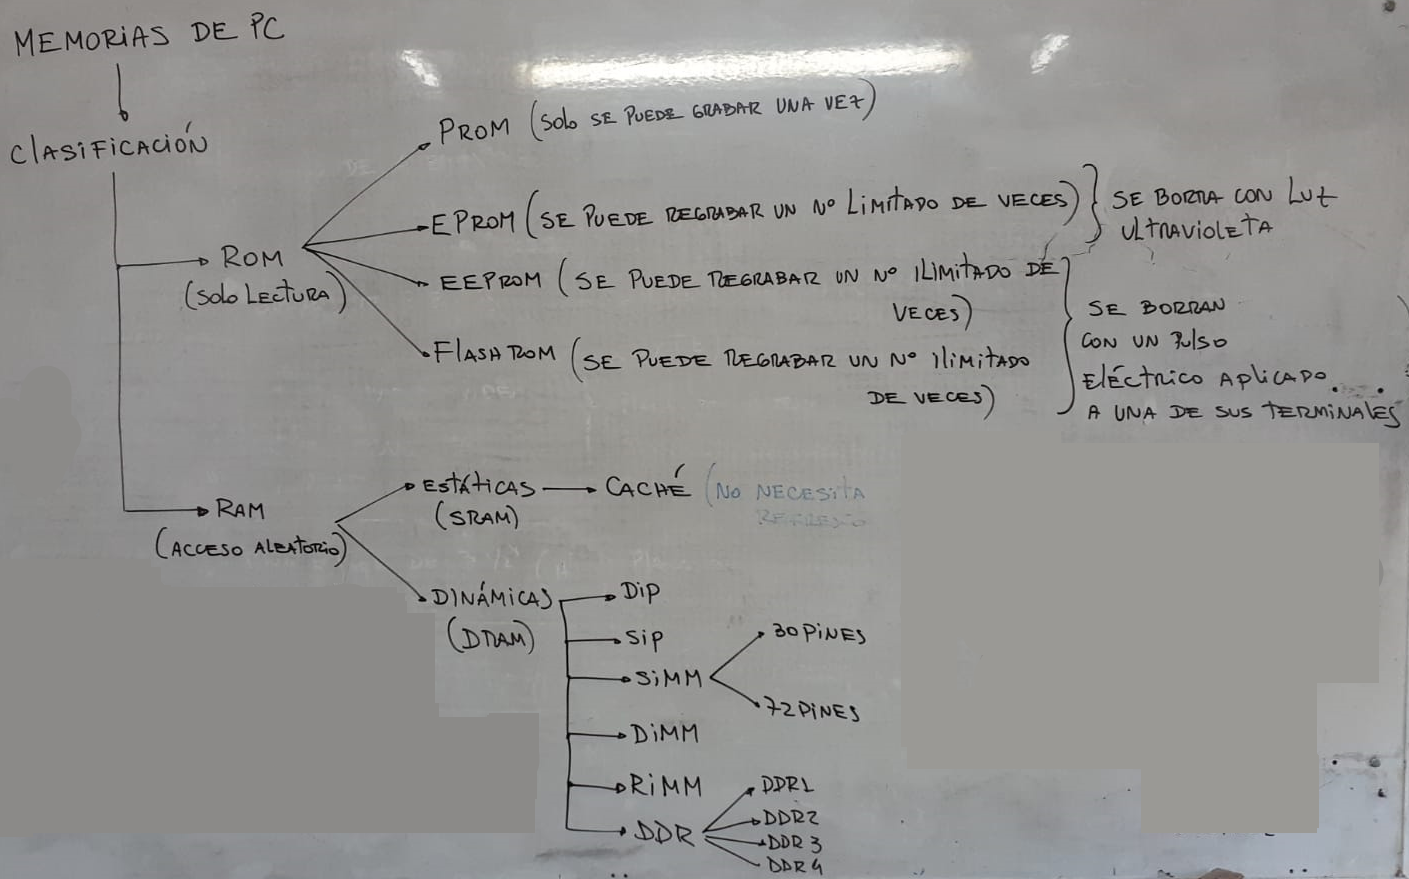 MEMORIAS DE PC
CLASIFICACIÓN
ROM
(SOLO LECTURA)
PROM (SOLO SE PUEDE GRABAR UNA VEZ)
EPROM (SE PUEDE REGRABAR UN Nº LIMITADO DE VECES)
SE BORRA CON LUZ
ULTRAVIOLETA
EEPROM (SE PUEDE REGRABAR UN Nº ILIMITADO DE
VECES)
FLASH ROM (SE PUEDE REGRABAR UN Nº ILIMITADO
DE VECES)
SE BORRAN
CON UN PULSO
ELÉCTRICO APLICADO
A UNA DE SUS TERMINALES
RAM
(ACCESO ALEATORIO)
ESTÁTICAS
(SRAM)
CACHÉ (NO NECESITA
REFRESCO
DINÁMICAS
(DRAM)
DIP
SIP
SIMM
30 PINES
72 PINES
DIMM
RIMM
DDR
DDR1
DDR2
DDR3
DDR4